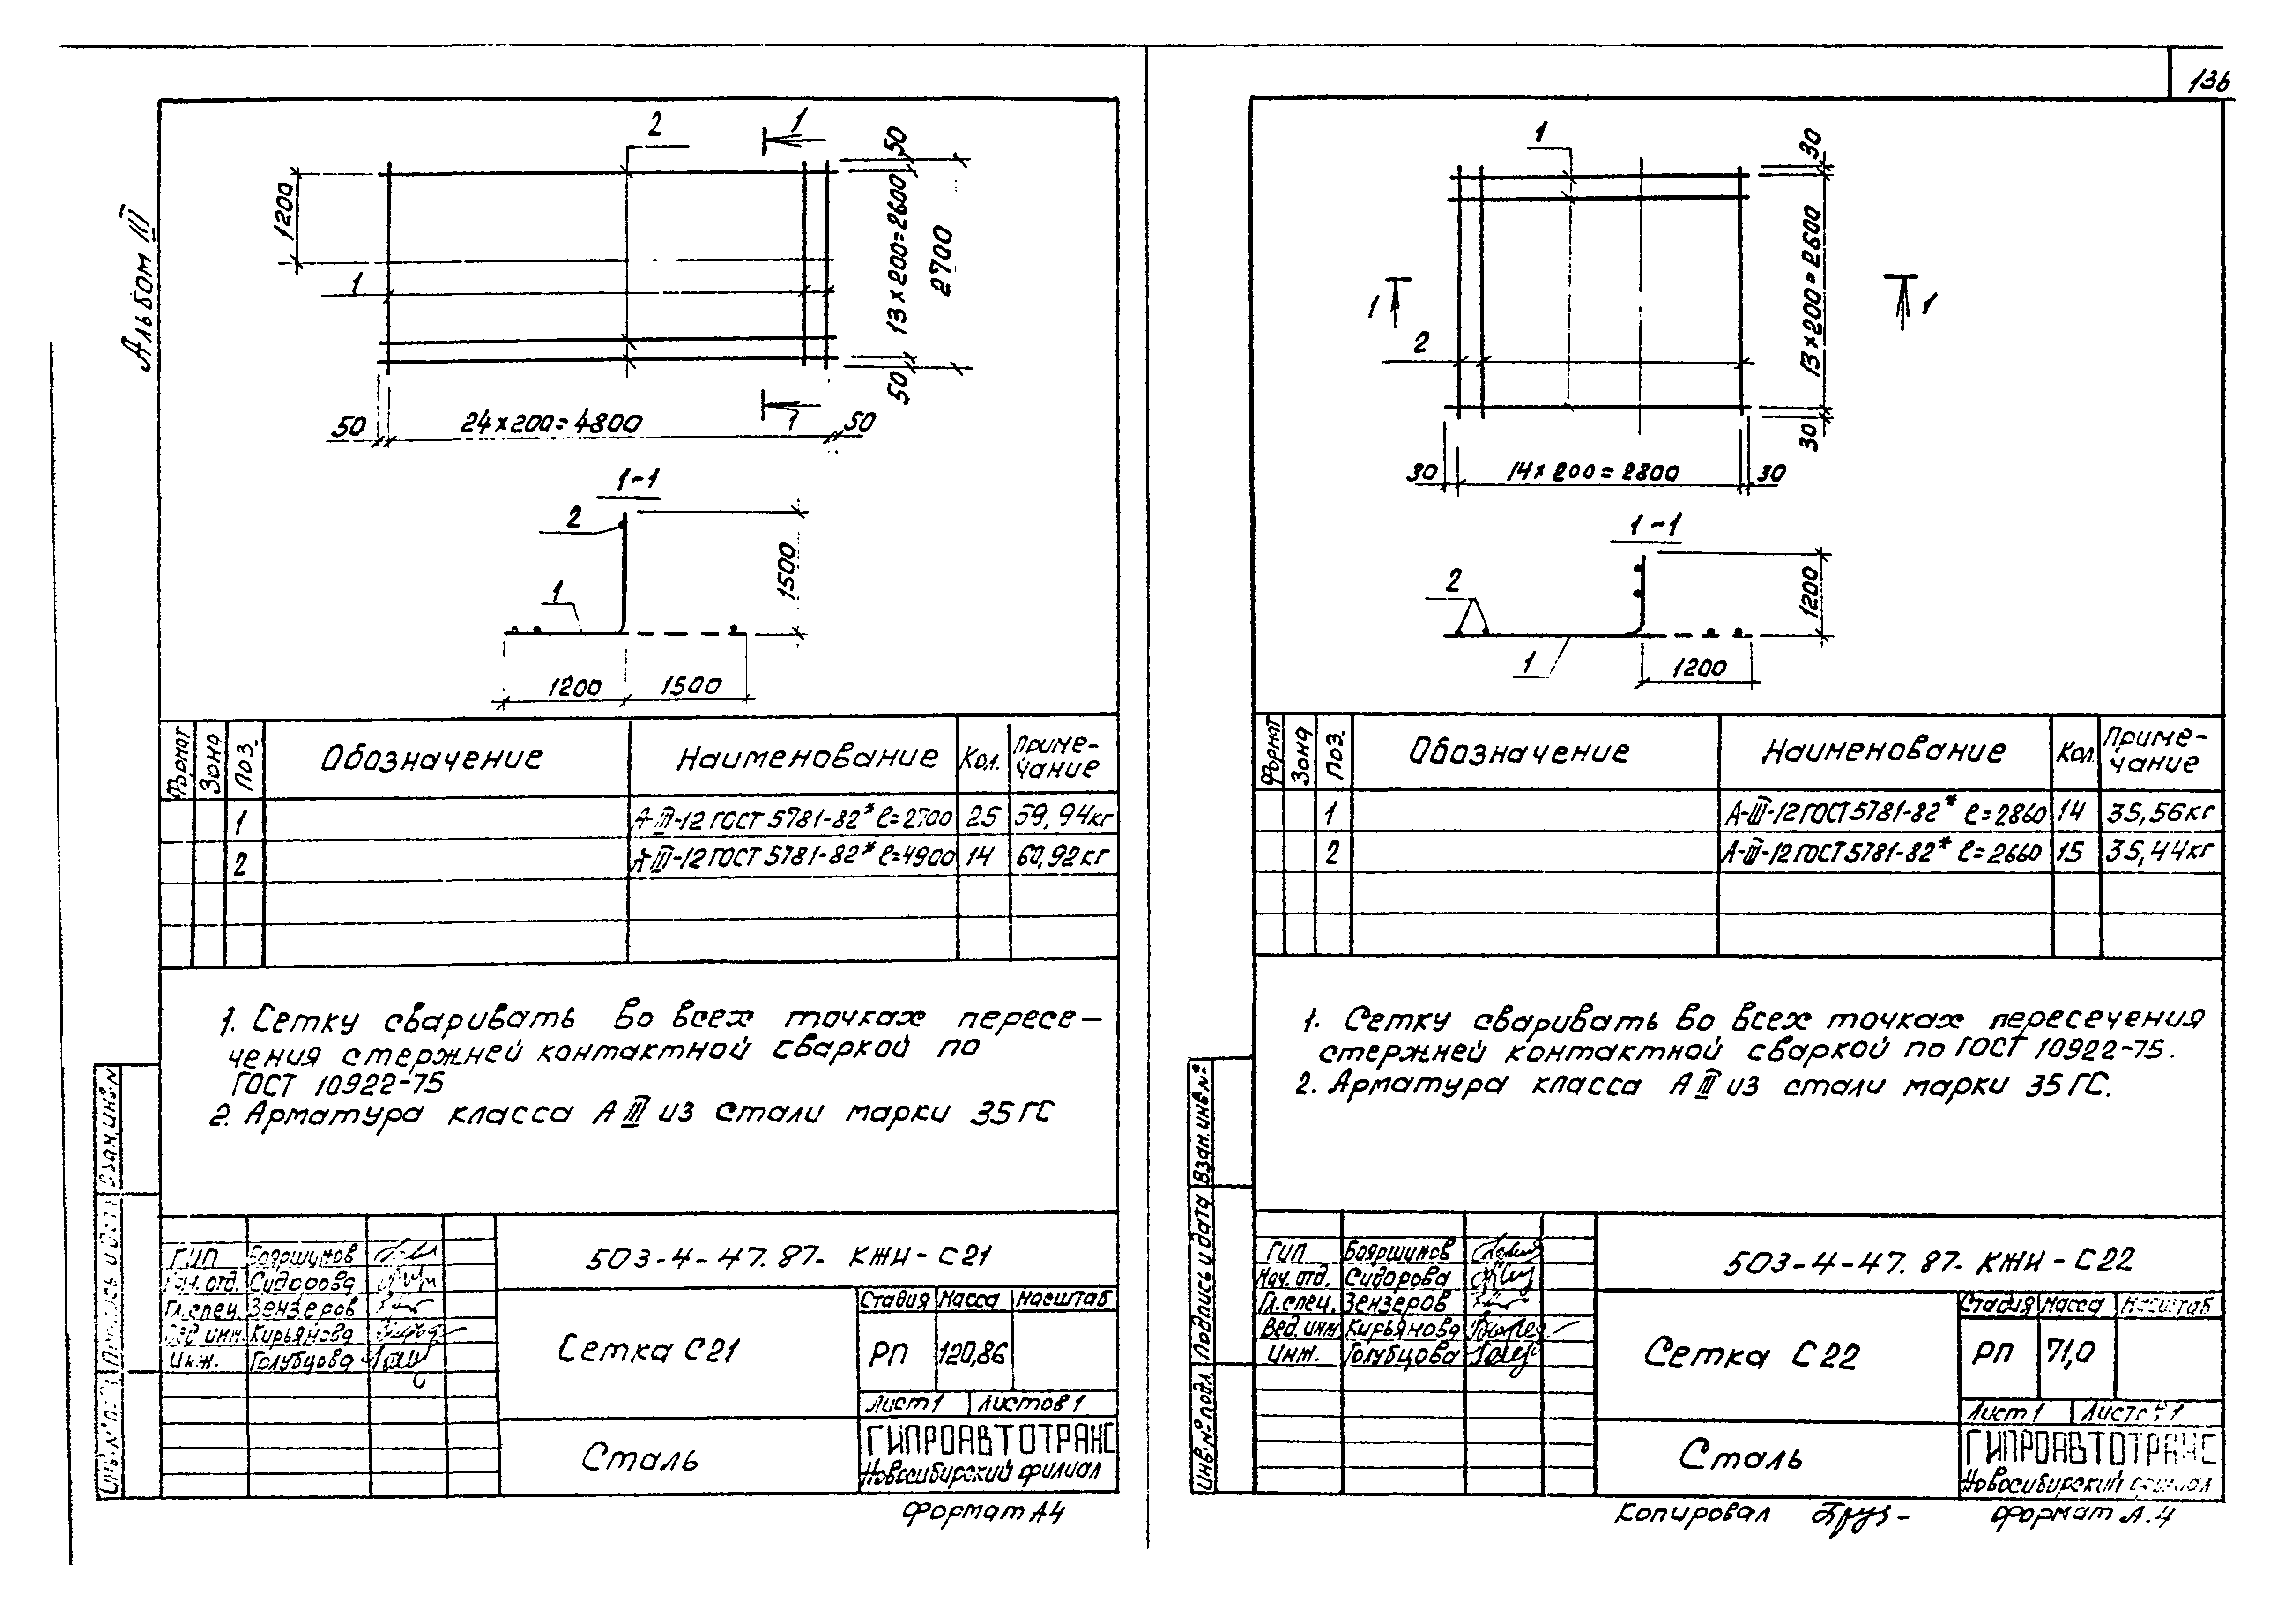 136
Альбом III
2
1
1200
1
50
13×200=2600
2700
50
1
50
24×200=4800
50
1-1
2
1
1500
1200
1500
Формат
Зона
Поз.
Обозначение
Наименование
Кол.
Приме-
чание
1 А-III-12 ГОСТ 5781-82* ℓ=2700 25 59,94кг
2 А-III-12 ГОСТ 5781-82* ℓ=4900 14 60,92кг
1. Сетку сваривать во всех точках пересе-
чения стержней контактной сваркой по
ГОСТ 10922-75
2. Арматура класса А III из стали марки 35ГС
Взам.инв.№
ГИП Бояршинов
Нач. отд. Сидорова
Гл.спец. Зензеров
Вед. инж. Кирьянова
Инж. Голубцова
503-4-47.87- КЖИ-С21
Сетка С21
Стадия Масса Масштаб
РП 120,86
Лист 1 Листов 1
Сталь
ГИПРОАВТОТРАНС
Новосибирский филиал
Формат А4
1
30
13×200=2600
1
1
2
30
30
14×200=2800
30
1-1
2
1200
1
1200
Формат
Зона
Поз.
Обозначение
Наименование
Кол.
Приме-
чание
1 А-III-12 ГОСТ 5781-82* ℓ=2860 14 35,56кг
2 А-III-12 ГОСТ 5781-82* ℓ=2660 15 35,44кг
1. Сетку сваривать во всех точках пересечения
стержней контактной сваркой по ГОСТ 10922-75.
2. Арматура класса А III из стали марки 35ГС.
Взам.инв.№
Подпись и дата
Инв.№ подл.
ГИП Бояршинов
Нач. отд. Сидорова
Гл.спец. Зензеров
Вед. инж Кирьянова
Инж. Голубцова
503-4-47.87- КЖИ-С22
Сетка С22
Стадия Масса Масштаб
РП 71,0
Лист 1 Листов 1
Сталь
ГИПРОАВТОТРАНС
Новосибирский филиал
Копировал
Формат А.4